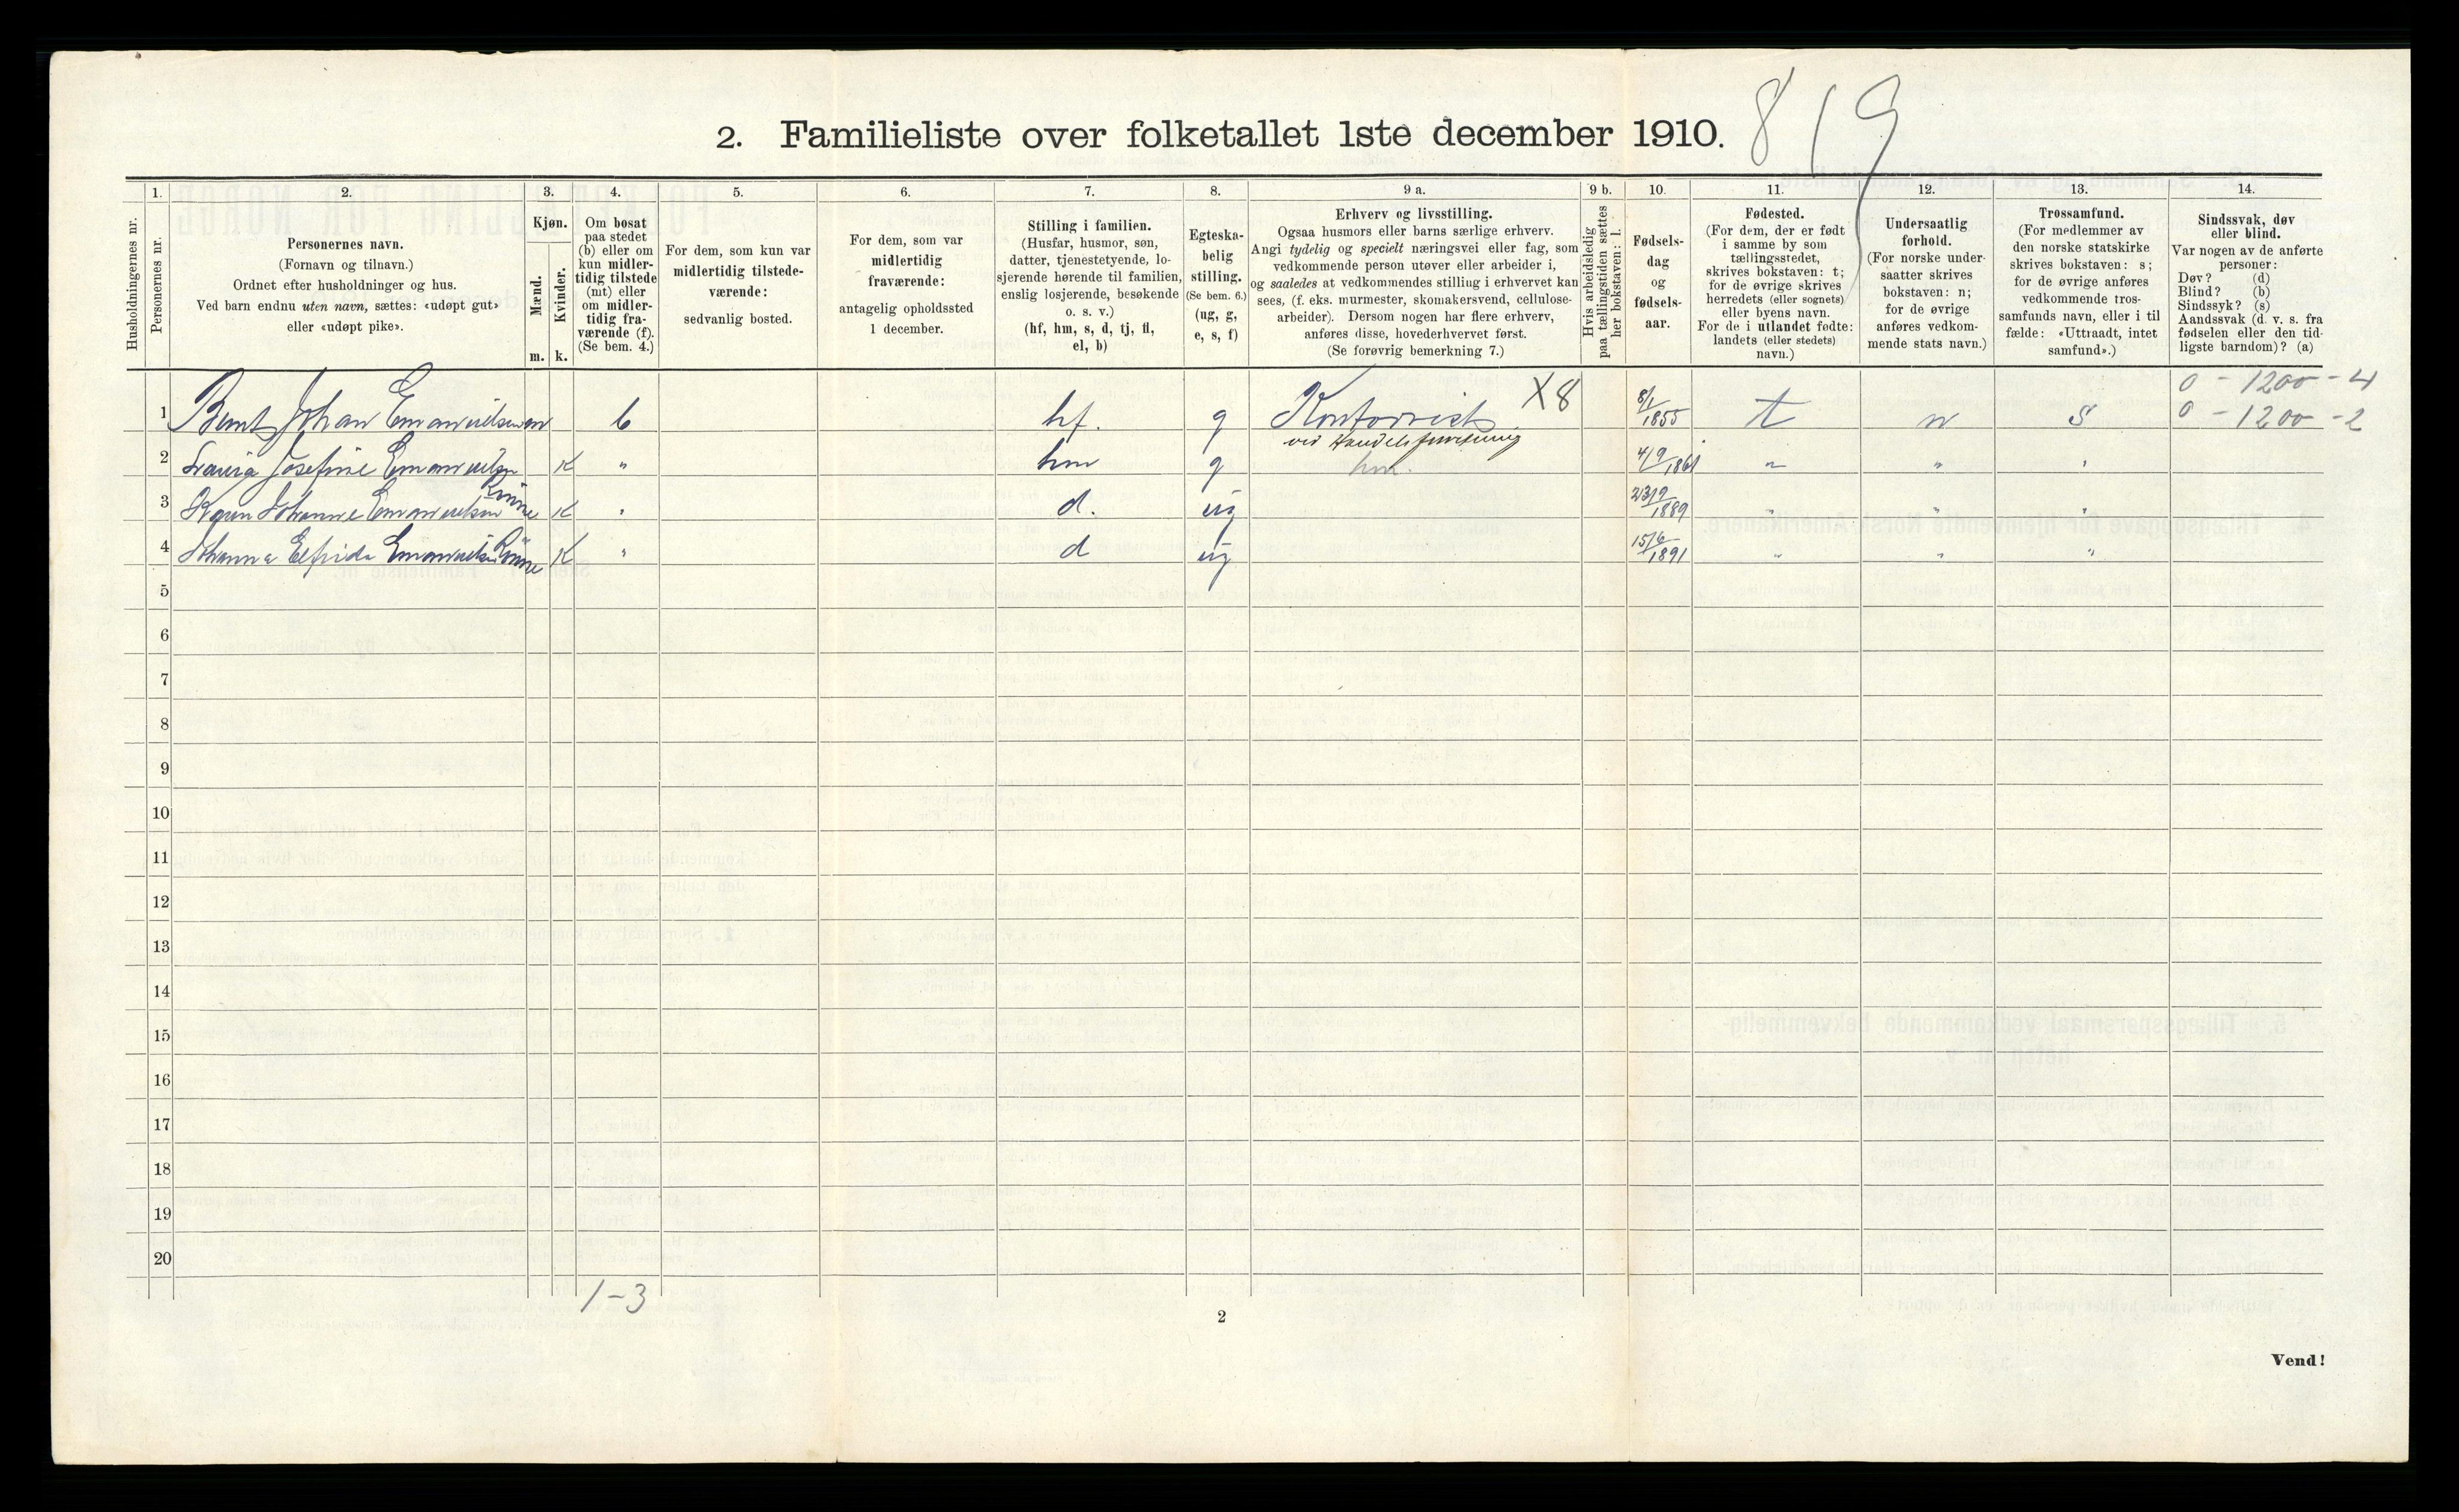 819
2. Familieliste over folketallet 1ste december 1910.
Husholdningernes nr.
1.
Personernes nr.
2.
Personernes navn.
(Fornavn og tilnavn.)
Ordnet efter husholdninger og hus.
Ved barn endnu uten navn, sættes: «udøpt gut»
eller «udøpt pike».
3.
Kjøn.
Mænd.
Kvinder.
m. k.
4.
Om bosat
paa stedet
(b) eller om
kun midler-
tidig tilstede
(mt) eller
om midler-
tidig fra-
værende (f).
(Se bem. 4.)
5.
For dem, som kun var
midlertidig tilstede-
værende:
sedvanlig bosted.
6.
For dem, som var
midlertidig
fraværende:
antagelig opholdssted
1 december.
7.
Stilling i familien.
(Husfar, husmor, søn,
datter, tjenestetyende, lo-
sjerende hørende til familien,
enslig losjerende, besøkende
o. s. v.)
(hf, hm, s, d, tj, fl,
el, b)
8.
Egteska-
belig
stilling.
(Se bem. 6.)
(ug, g,
e, s, f)
9 a.
Erhverv og livsstilling.
Ogsaa husmors eller barns særlige erhverv.
Angi tydelig og specielt næringsvei eller fag, som
vedkommende person utøver eller arbeider i,
og saaledes at vedkommendes stilling i erhvervet kan
sees, (f. eks. murmester, skomakersvend, cellulose-
arbeider). Dersom nogen har flere erhverv,
anføres disse, hovederhvervet først.
(Se forøvrig bemerkning 7.)
9 b.
Hvis arbeidsledig
paa tællingstiden sættes
her bokstaven: l.
10.
Fødsels-
dag
og
fødsels-
aar.
11.
Fødested.
(For dem, der er født
i samme by som
tællingsstedet,
skrives bokstaven: t;
for de øvrige skrives
herredets (eller sognets)
eller byens navn.
For de i utlandet fødte:
landets (eller stedets)
navn.)
12.
Undersaatlig
forhold.
(For norske under-
saatter skrives
bokstaven: n;
for de øvrige
anføres vedkom-
mende stats navn.)
13.
Trossamfund.
(For medlemmer av
den norske statskirke
skrives bokstaven: s;
for de øvrige anføres
vedkommende tros-
samfunds navn, eller i til
fælde: «Uttraadt, intet
samfund».)
14.
Sindssvak, døv
eller blind.
Var nogen av de anførte
personer:
Døv? (d)
Blind? (b)
Sindssyk? (s)
Aandssvak (d. v. s. fra
fødselen eller den tid-
ligste barndom)? (a)
0 - 1200 - 4
1 Bernt Johan Emanuelsen m b hf. g Kontorist X8 8/1 1855 t n s 0 - 1200 - 2
ved Handelsforretning
2 Josefine Emanuelsen K " hm g hm. 4/9 1861 " " "
3 Karen Johanne Emanuelsen Rønne K " d. ug 23/9 1889 " " "
4 Johanna Elfrida Emanuelsen Rønne K " d ug 15/6 1891 " " "
5
6
7
8
9
10
11
12
13
14
15
16
17
18
19
20
1-3
2
Vend!